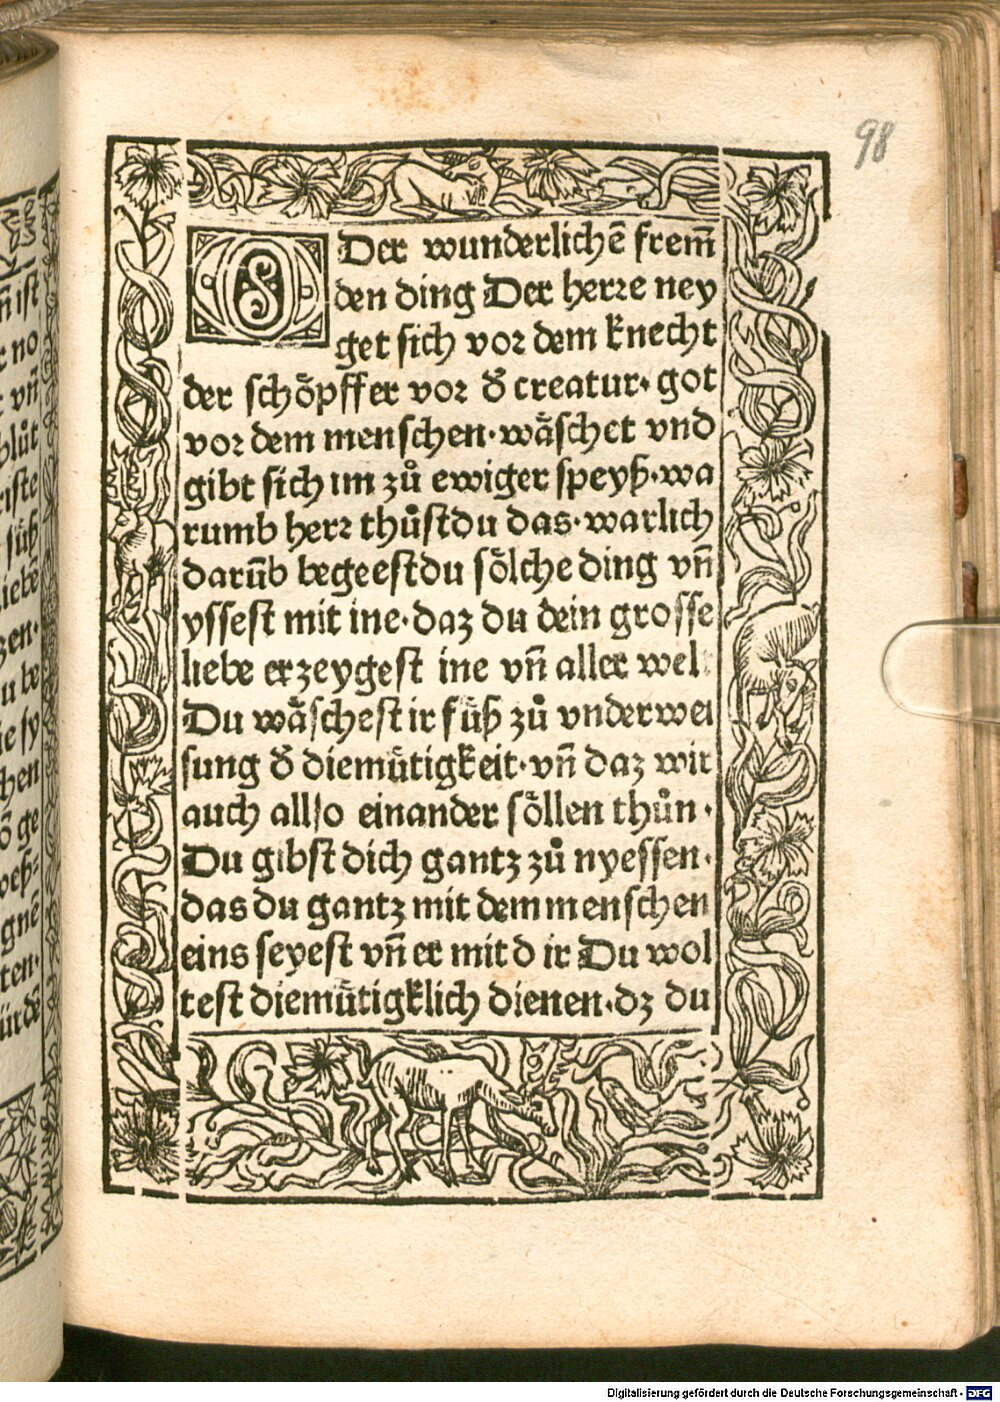 98
O Der wunderlichē frem̄
den ding Der herre ney
get sich vor dem knecht
der schöpffer vor d̕ creatur· got
vor dem menschen·wäschet vnd
gibt sich im zů ewiger speyß·wa
rumb herr thůstdu das·warlich
darūb begeestdu sölche ding vn̄
yssest mit ine·daz du dein grosse
liebe erzeygest ine vn̄ aller wel
Du wäschest ir füß zů vnderwei
sung d̕ diemütigkeit·vn̄ daz wir
auch allso einander söllen thůn·
Du gibst dich gantz zů nyessen·
das du gantz mit dem menschen
eins seyest vn̄ er mit d ir Du wol
test diemütigklich dienen·dz du
n̄ ist
no
vn̄
blůt
riste
süß
liebē
zen·
u be
ie sy
chen
ge
weß-
gnē
ten·
ürdē
Digitalisierung gefördert durch die Deutsche Forschungsgemeinschaft - DFG